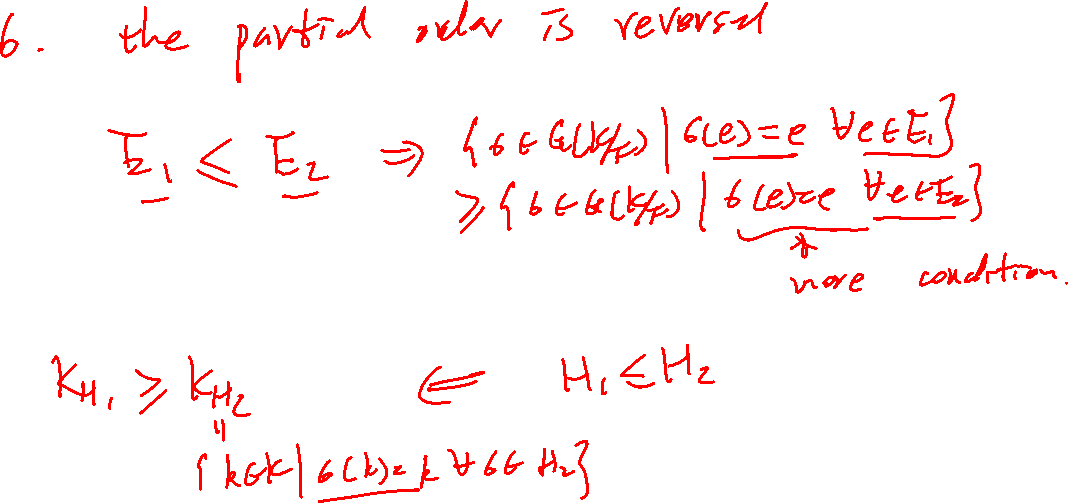 6. the partial order is reversed
E₁ ≤ E₂ ⇒ {σ ∈ G(K/F) | σ(e)=e ∀e∈E₁}
≥ {σ ∈ G(K/F) | σ(e)=e ∀e∈E₂}
more condition.
K_H₁ ≥ K_H₂ ⇐ H₁ ≤ H₂
||
{k∈K | σ(k)=k ∀σ∈H₂}